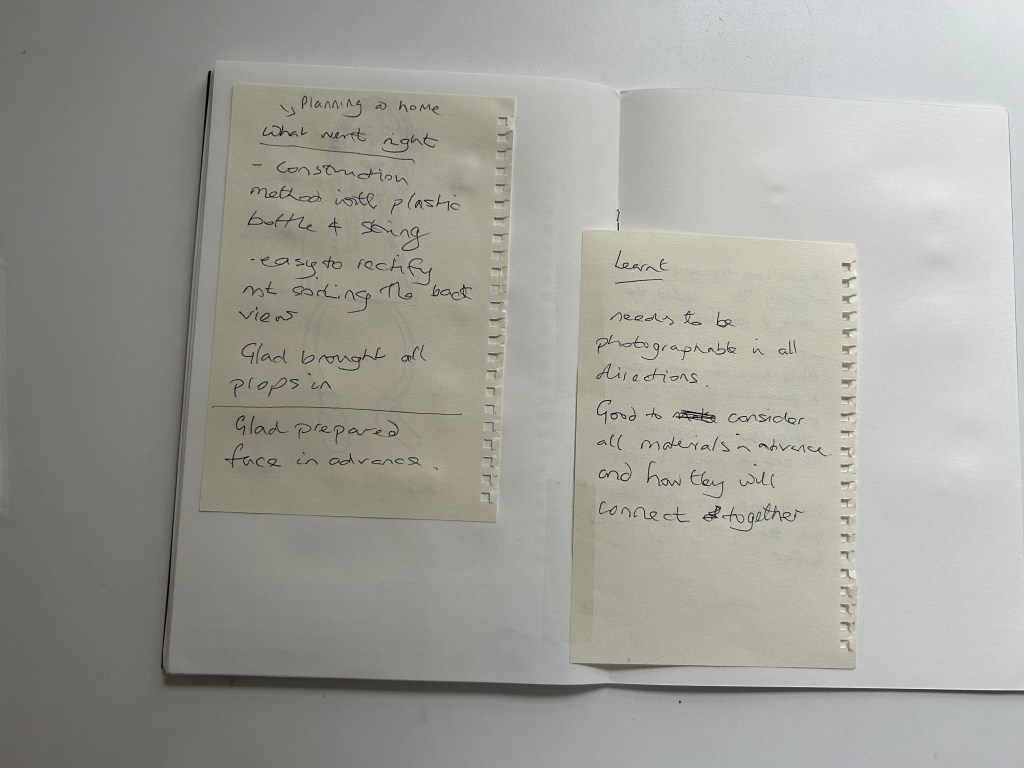 Planning @ home
What went right
- construction
method with plastic
bottle & string
- easy to rectify
not the back
view
Glad brought all
props in
Glad prepared
face in advance.
Learnt
needs to be
photographable in all
directions.
Good to consider
all materials in advance.
and how they will
connect together